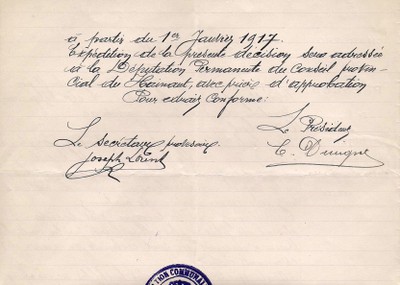 à partir du 1er Janvier 1917.
Expédition de la présente décision sera adressée
et à la Députation Permanente du Conseil provin-
cial du Hainaut, avec prière d'approbation
Pour extrait conforme:
Le Président
Le Secrétaire provisoire
Joseph